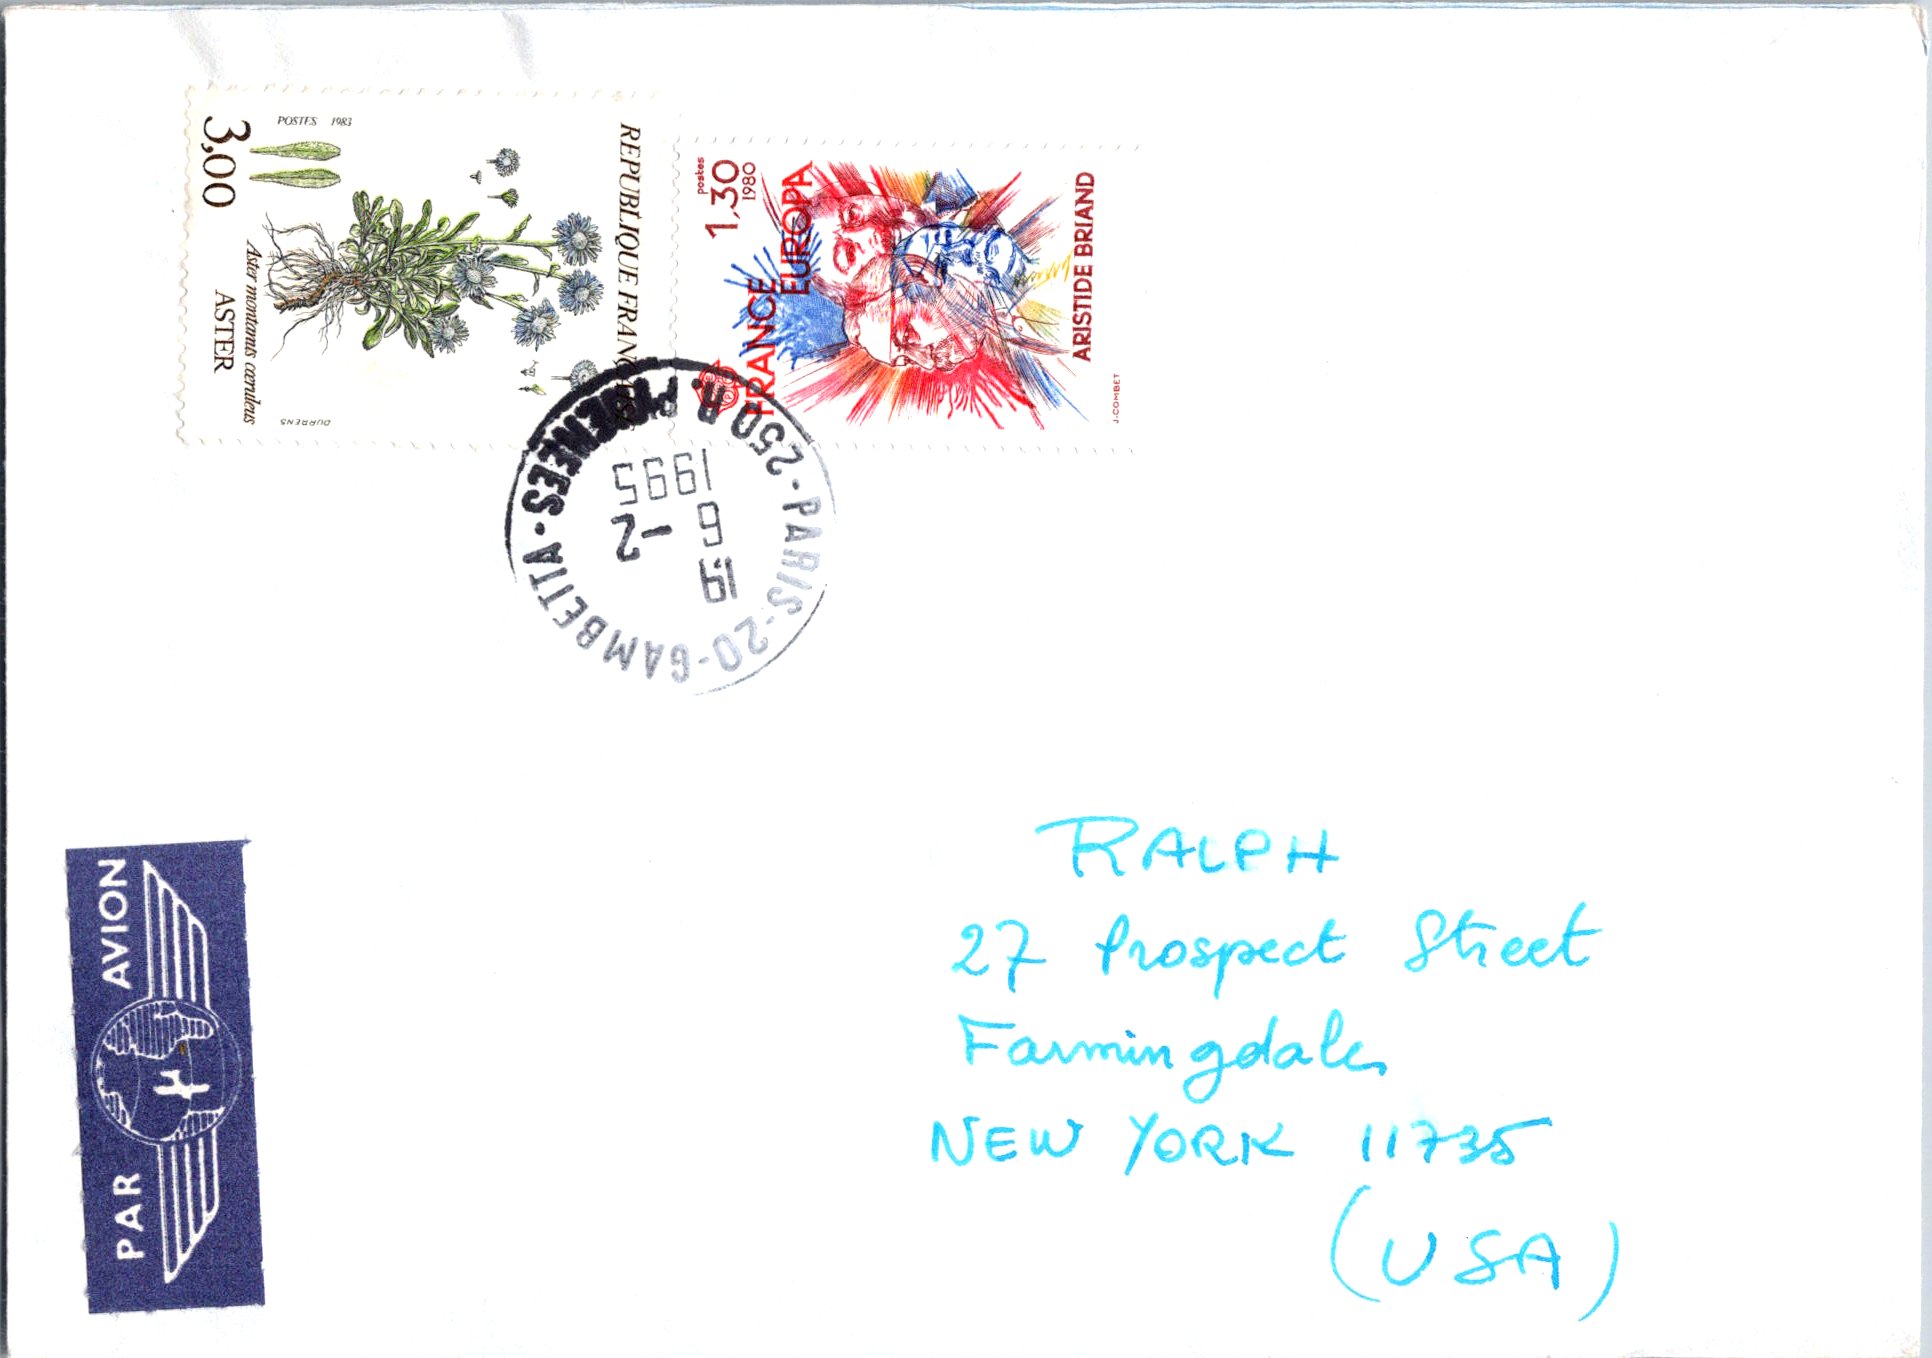 POSTES 1983
3,00
REPUBLIQUE FRANÇAISE
Aster montanus cæruleus
ASTER
DURRENS
postes
1,30
1980
EUROPA
FRANCE
ARISTIDE BRIAND
J.COMBET
PARIS-20-GAMBETTA • PYRENEES • 250 R.
19
6 -2
1995
PAR AVION
RALPH
27 Prospect Street
Farmingdale,
NEW YORK 11735
(USA)